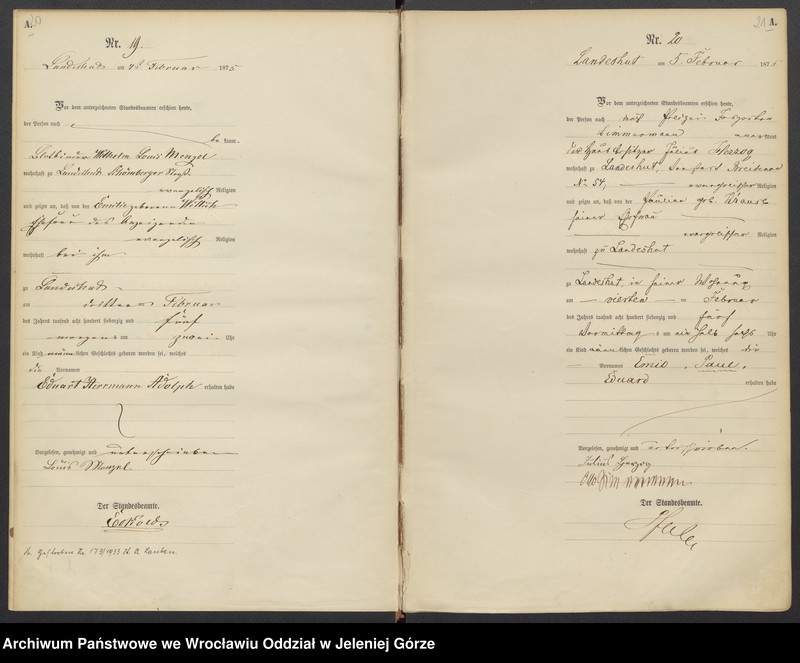 A.
20
Nr. 19.
am 4ᵗ Februar 1875
Vor dem unterzeichneten Standesbeamten erschien heute,
der Person nach
kannt.
Wilhelm Louis Menzel
wohnhaft zu Landeshut
evangelisch Religion
und zeigte an, daß von der Emilie geborenen Wittich
Ehefrau des Anzeigenden
evangelisch Religion
wohnhaft bei ihm
zu Landeshut
am dritten Februar
des Jahres tausend acht hundert siebenzig und fünf
morgens zwei Uhr
ein Kind männlichen Geschlechts geboren worden sei, welches
die Vornamen
Eduart Herrmann Adolph erhalten habe
Vorgelesen, genehmigt und unterschrieben
Louis Menzel
Der Standesbeamte.
21 A.
Nr. 20
Landeshut am 5. Februar 1875
Vor dem unterzeichneten Standesbeamten erschien heute,
der Person nach
Zimmermann anerkannt
Julius Herzog
wohnhaft zu Landeshut,
No 54, evangelischer Religion
und zeigte an, daß von der Pauline geb. Krause
seiner Ehefrau
evangelischer Religion
wohnhaft zu Landeshut
zu Landeshut in seiner Wohnung
am vierten Februar
des Jahres tausend acht hundert siebenzig und fünf
Vormittag um ein halb sechs Uhr
ein Kind männlichen Geschlechts geboren worden sei, welches die
Vornamen Emil, Paul,
Eduard erhalten habe
Vorgelesen, genehmigt und unterschrieben.
Julius Herzog
Der Standesbeamte.
Archiwum Państwowe we Wrocławiu Oddział w Jeleniej Górze